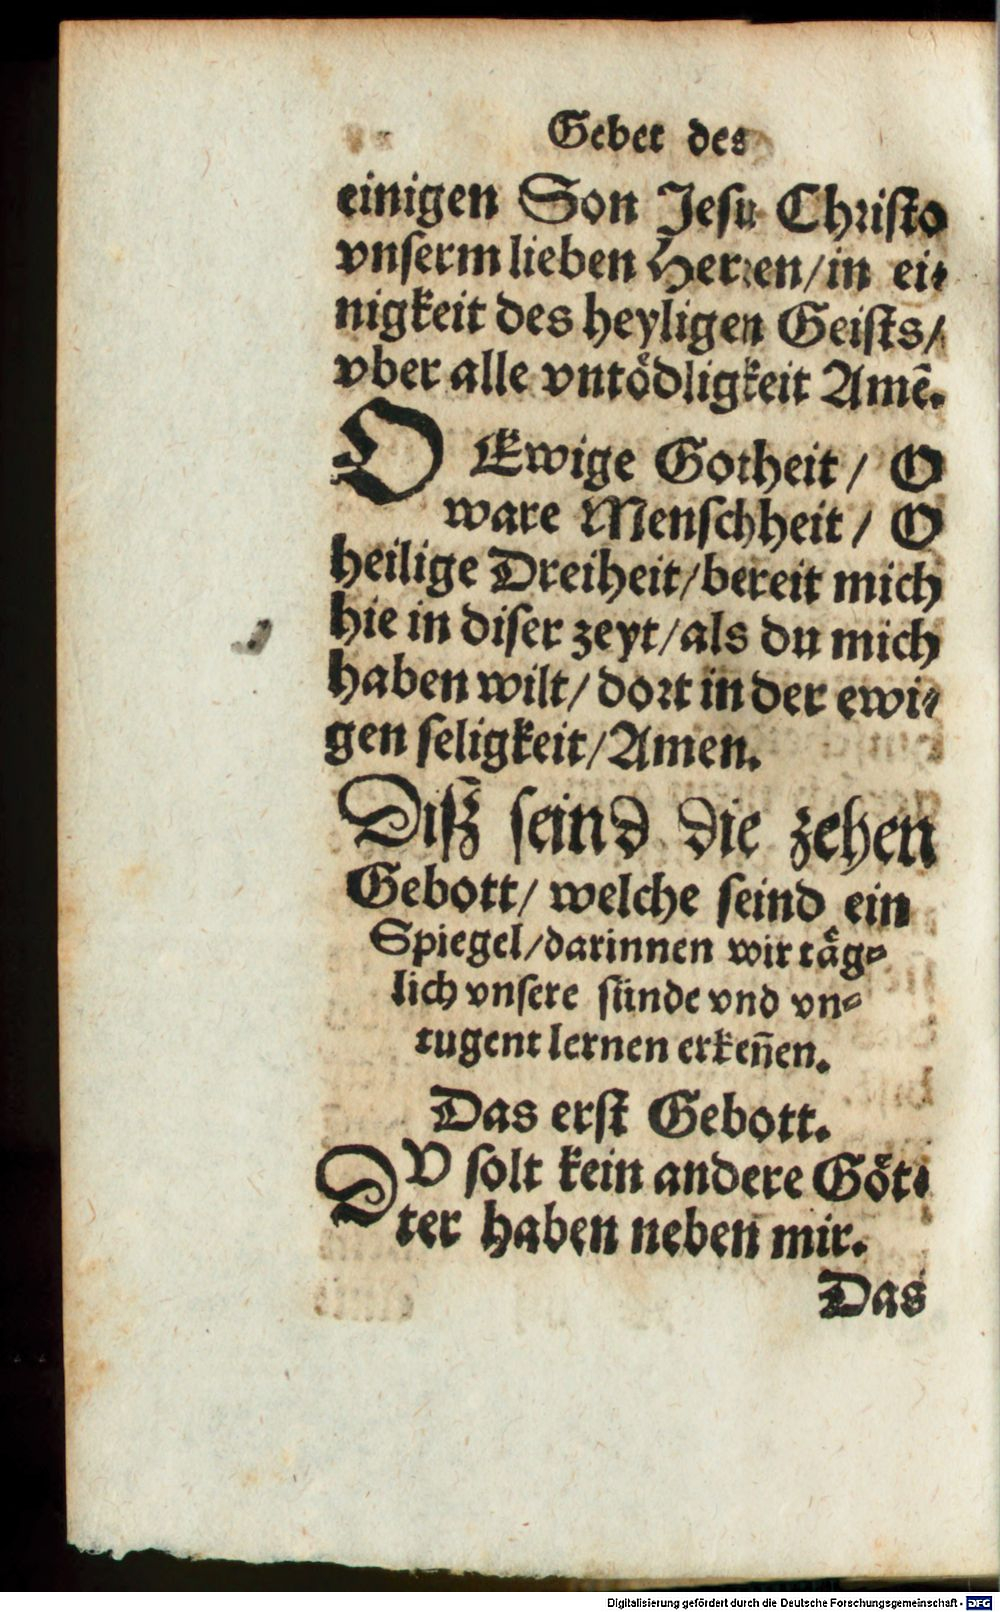 Gebet des
einigen Son Jesu Christo
vnserm lieben Herren/in ei⸗
nigkeit des heyligen Geists/
vber alle vntoͤdligkeit Amē.
O Ewige Gotheit/ O
ware Menschheit/ O
heilige Dreiheit/bereit mich
hie in diser zeyt/als du mich
haben wilt/dort in der ewi⸗
gen seligkeit/Amen.
Diß seind die zehen
Gebott/ welche seind ein
Spiegel/darinnen wir taͤg⸗
lich vnsere sünde vnd vn⸗
tugent lernen erkeñen.
Das erst Gebott.
DV solt kein andere Goͤt⸗
ter haben neben mir.
Das
Digitalisierung gefördert durch die Deutsche Forschungsgemeinschaft - DFG